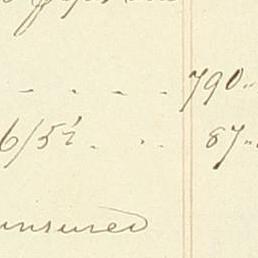 - - - - 790"
6/5½ - - - 87"
unsured